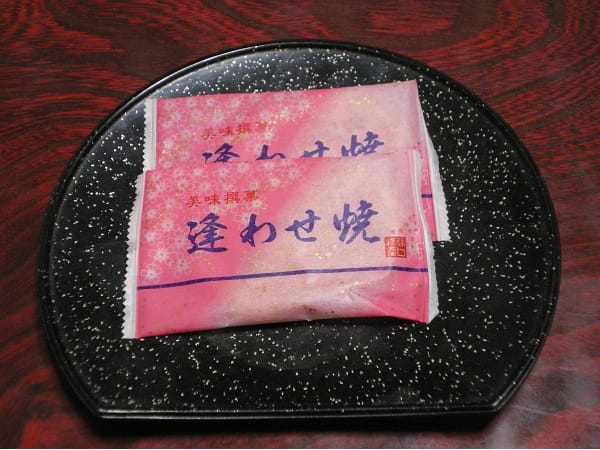 美味撰菓
逢わせ焼
美味撰菓
逢わせ焼